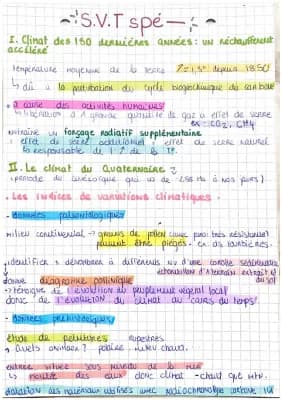 S.V.T spé
I. Climat des 150 dernières années : un réchauffement
accéléré
température moyenne de la terre depuis 1850
↳ dû à la perturbation du cycle biogéochimique du carbone
à cause des activités humaines
↳ libération à grande quantité de gaz à effet de serre
ex : CO2, CH4
entraine un forçage radiatif supplémentaire
effet de serre additionnel effet de serre naturel
responsable de
II. Le climat du Quaternaire :
période du cénozoïque qui va de à nos jours
Les indices de variations climatiques
- données paléontologiques
milieu continental → grains de pollen très résistant
peuvent être piégés ex : ds tourbières
identifier + dénombrer à différents nv d'une carotte sédimentaire
échantillon d'terrain extrait
du sol
donne diagramme pollinique
↳ témoigne de l'évolution du peuplement végétal local
donc de l'évolution du climat au cours du temps
- données préhistoriques
étude de peintures rupestres
↳ quels animaux ? polaire milieu chaud
entrée située sous niveau de la mer
↳ montée des eaux donc climat + chaud que
datation des matériaux utilisés avec radiochronologie carbone 14